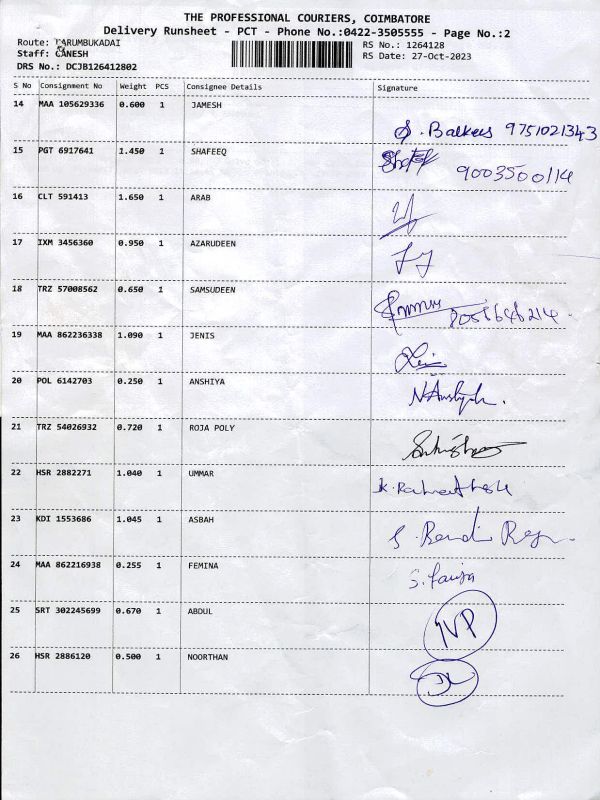 THE PROFESSIONAL COURIERS, COIMBATORE
Delivery Runsheet - PCT - Phone No.:0422-3505555 - Page No.:2
Route: KARUMBUKADAI
Staff: GANESH
DRS No.: DCJB126412802
RS No.: 1264128
RS Date: 27-Oct-2023
S No Consignment No Weight PCS Consignee Details Signature
14 MAA 105629336 0.600 1 JAMESH
S. Balkees 9751021343
15 PGT 6917641 1.450 1 SHAFEEQ
9003500114
16 CLT 591413 1.650 1 ARAB
17 IXM 3456360 0.950 1 AZARUDEEN
18 TRZ 57008562 0.650 1 SAMSUDEEN
19 MAA 862236338 1.090 1 JENIS
20 POL 6142703 0.250 1 ANSHIYA
21 TRZ 54026932 0.720 1 ROJA POLY
22 HSR 2882271 1.040 1 UMMAR
23 KDI 1553686 1.045 1 ASBAH
24 MAA 862216938 0.255 1 FEMINA
25 SRT 302245699 0.670 1 ABDUL
26 HSR 2886120 0.500 1 NOORTHAN